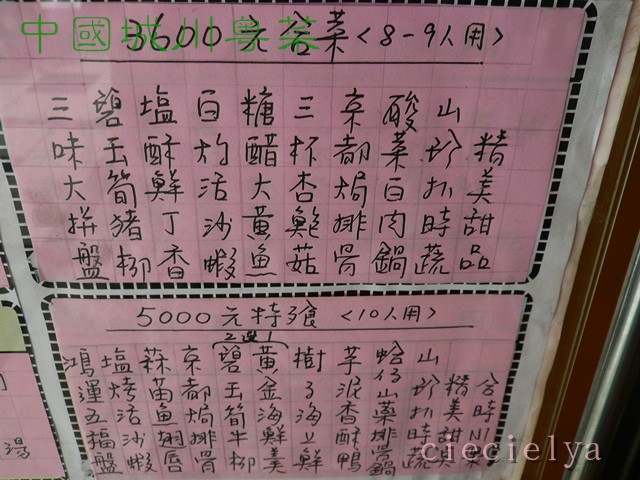 中國城川粵菜
3600元合菜<8-9人用>
三味大拼盤
碧玉筒豬柳
塩酥鮮丁香
白灼活沙蝦
糖醋大黃魚
三杯杏鮑菇
京都焗排骨
酸菜白肉鍋
山珍扒時蔬
精美甜品
5000元特餐<10人用>
2選1
鴻運五福盤
塩烤活沙蝦
蒜苗魚翅唇
京都焗排骨
碧玉筒牛柳
黃金海鮮羹
樹子海上鮮
芋泥香酥鴨
蛤仔山藥排骨鍋
山珍扒時蔬
精美甜
合時
湯
ciecielya